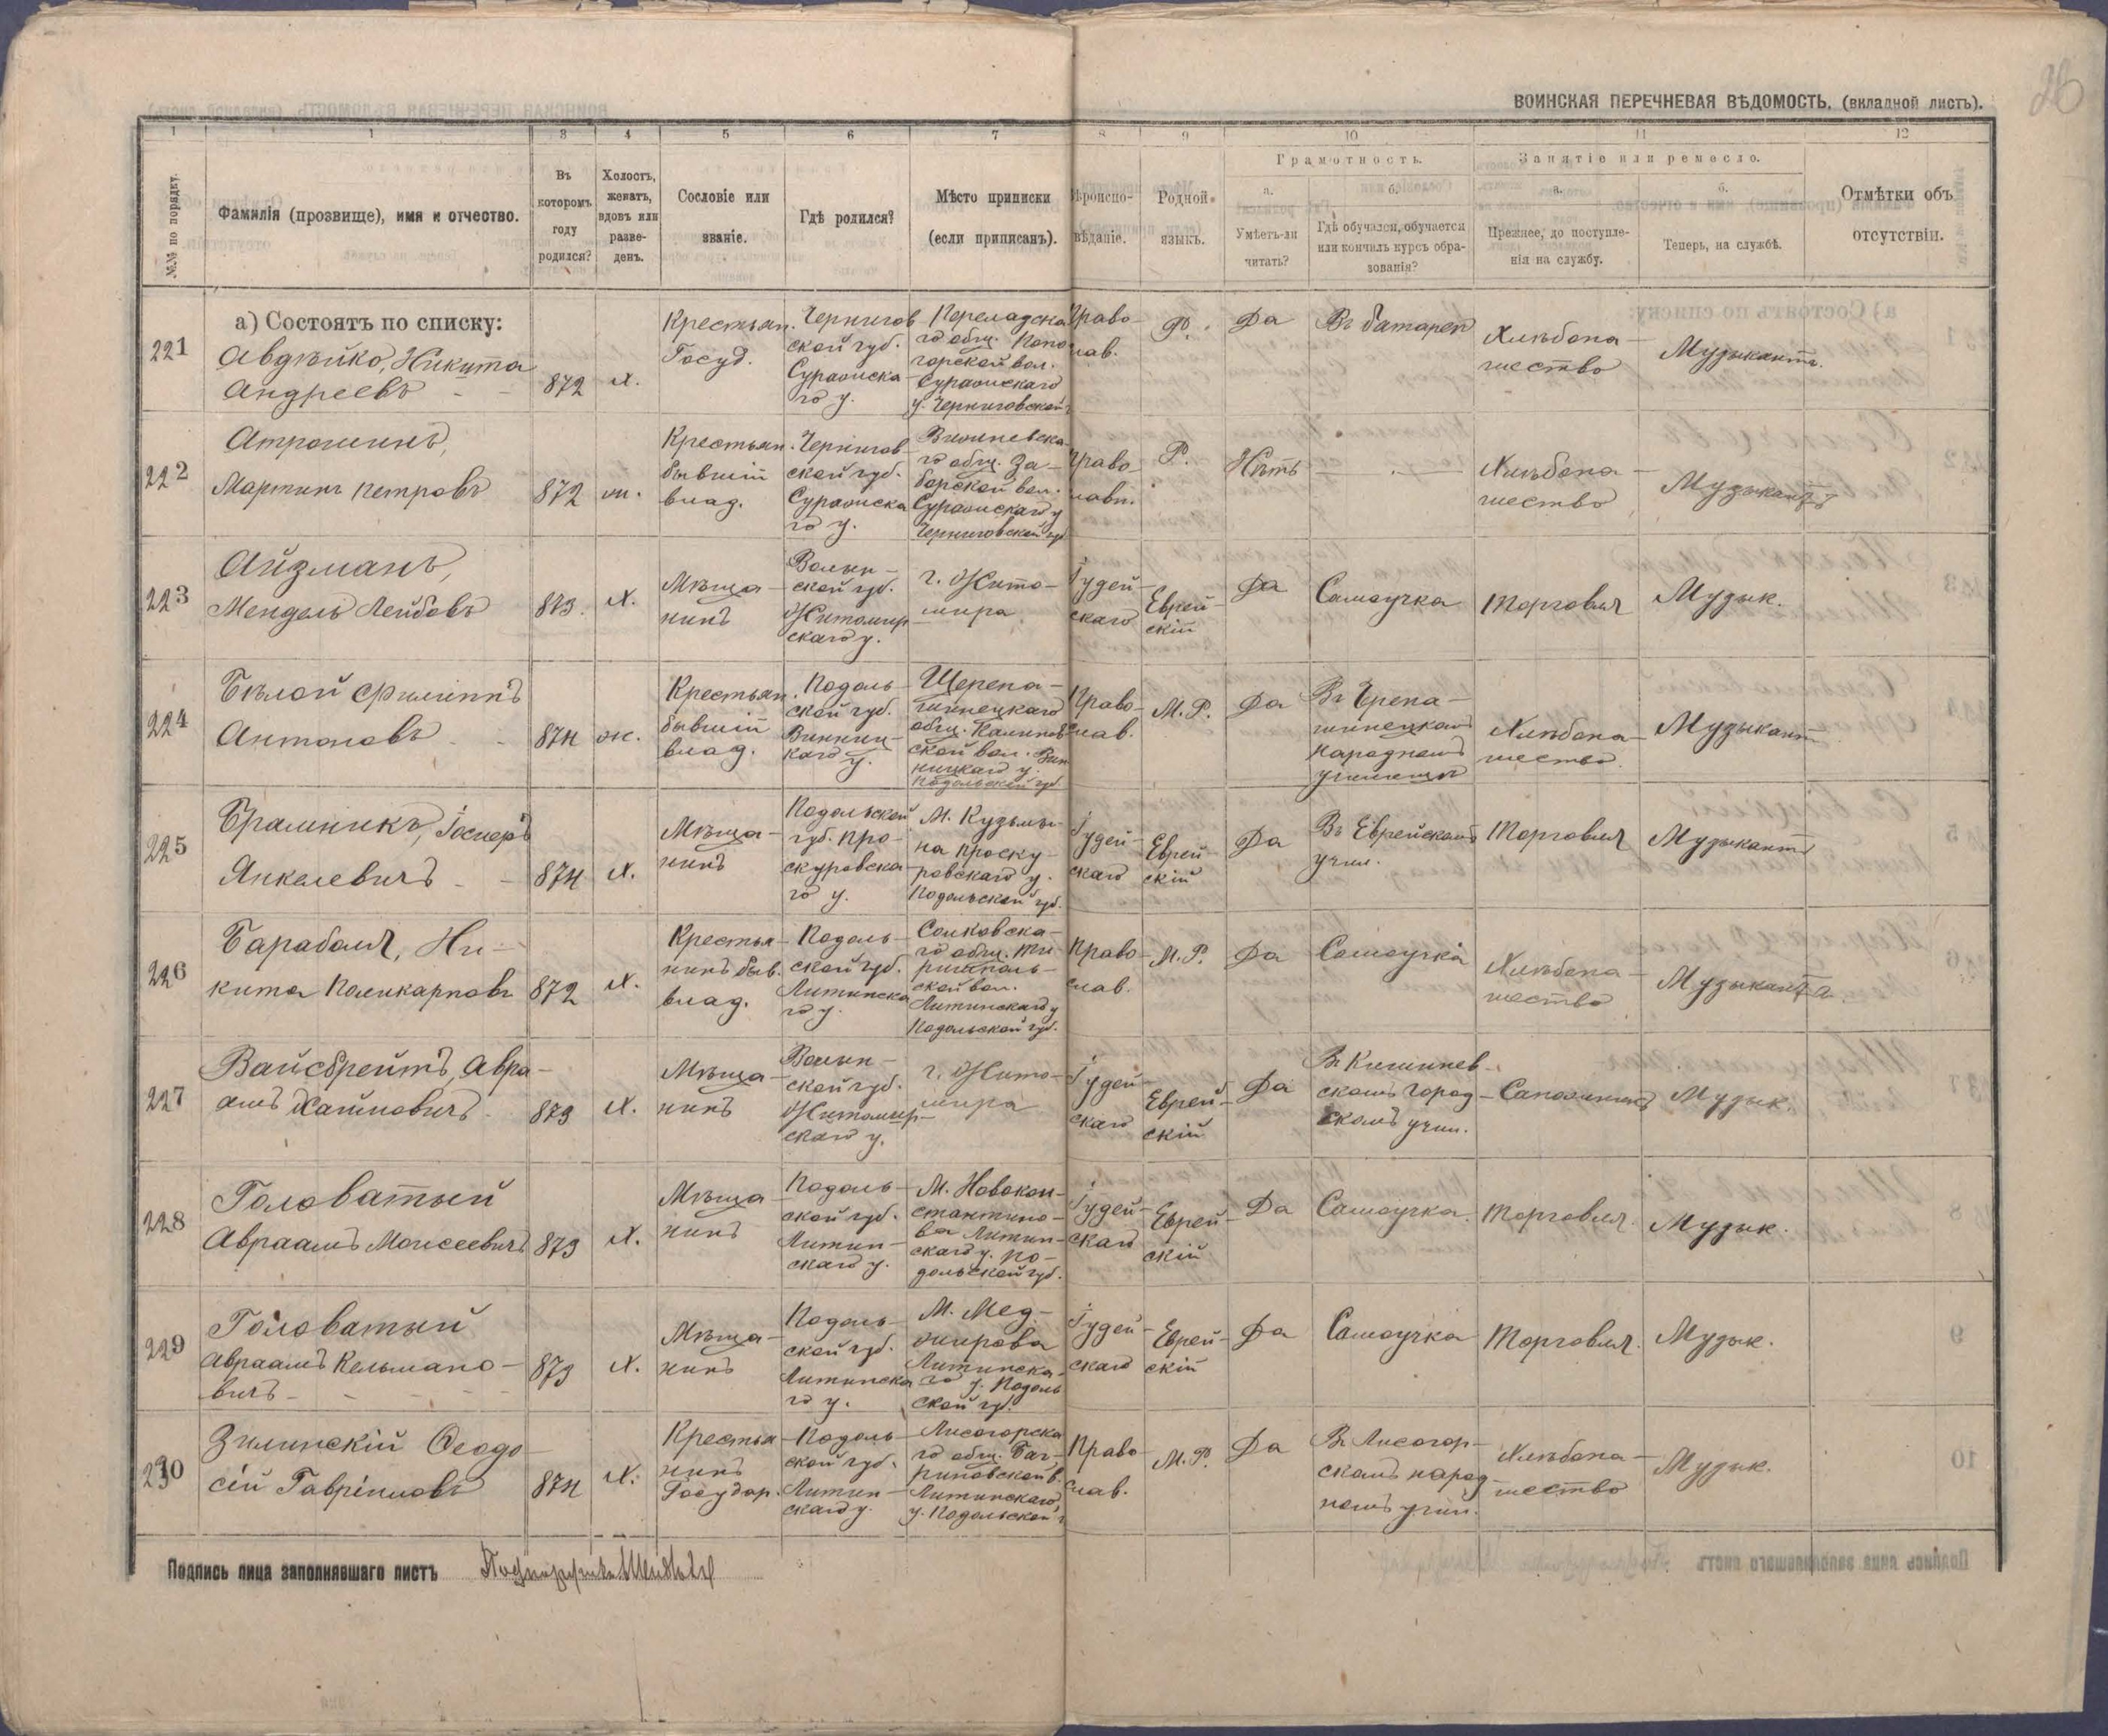 26
ВОИНСКАЯ ПЕРЕЧНЕВАЯ ВѢДОМОСТЬ, (вкладной листъ).
1 1 3 4 5 6 7 8 9 10 11 12
№№ по порядку.
Фамилія (прозвище), имя и отчество.
Въ которомъ году родился?
Холостъ, женатъ, вдовъ или разве-денъ.
Сословіе или званіе.
Гдѣ родился?
Мѣсто приписки (если приписанъ).
Вѣроиспо-вѣданіе.
Родной языкъ.
Грамотность.
а. Умѣетъ-ли читать?
б. Гдѣ обучался, обучается или кончилъ курсъ обра-зованія?
Занятіе или ремесло.
а. Прежнее, до поступле-нія на службу.
б. Теперь, на службѣ.
Отмѣтки объ отсутствіи.
а) Состоятъ по списку:
221 Авдѣйко, Никита Андреевъ 872 х. Крестьян. Госуд. Чернигов ской губ. Суражска го у. го общ. горской вол. Суражскаго у. Черниговской Право слав. Р. Да Въ батареи Хлѣбопа-шество Музыкантъ.
222 Атрошинъ, Мартинъ Петровъ 872 ж. Крестьян. бывшій влад. Чернигов-ской губ. Суражска го у. го общ. За-борской вол. Суражскаго у Черниговской губ Право-славн. Р. Нѣтъ — Хлѣбопа-шество Музыкантъ
223 Айзманъ, Мендель Лейбовъ 873. х. Мѣща-нинъ Волын-ской губ. Житомир-скаго у. г. Жито-мира Іудей-скаго Еврей-скій Да Самоучка Торговля Музык.
224 Бѣлой Филиппъ Антоновъ 874 ж. Крестьян. бывшій влад. Подоль-ской губ. Винниц-каго у. Щерепа-шинецкаго общ. ской вол. Вин ницкаго у. Подольской губ Право-слав. М. Р. Да Въ Черепа-шинецкомъ Народномъ училищѣ Хлѣбопа-шество. Музыкант
225 Брамникъ, Іосперъ Янкелевичъ 874 х. Мѣща-нинъ Подольской губ. Про-скуровска го у. М. Кузьми-на Проску-ровскаго у. Подольской губ. Іудей-скаго Еврей-скій Да Въ Еврейскомъ учил. Торговля Музыкантъ
226 Барабаля, Ни-кита Поликарповъ 872 х. Крестья-нинъ быв. влад. Подоль-ской губ. Литинска го у. го общ. ской вол. Литинскаго у Подольской губ. Право-слав. М. Р. Да Самоучка Хлѣбопа-шество Музыканта.
227 Вайсбрейтъ, Авра-амъ Хаимовичъ 873 х. Мѣща-нинъ Волын-ской губ. Житомир-скаго у. г. Жито-мира Іудей-скаго Еврей-скій Да Въ Кишинев-скомъ Город-скомъ учил. Сапожникъ Музык.
228 Головатый Авраамъ Моисеевичъ 873 х. Мѣща-нинъ Подоль-ской губ. Литин-скаго у. М. Новокон-стантино-ва Литин-скаго у. По-дольской губ. Іудей-скаго Еврей-скій Да Самоучка. Торговля. Музык.
229 Головатый Авраамъ Кельмано-вичъ 873 х. Мѣща-нинъ Подоль-ской губ. Литинска го у. М. Мед-жирова Литинска-го у. Подоль ской губ. Іудей-скаго Еврей-скій Да Самоучка Торговля. Музык.
230 Зилинскій Ѳеодо-сій Гавріиловъ 874 х. Крестья-нинъ Государ. Подоль-ской губ. Литин-скаго у. Лисогорска го общ. Баг-риновской в. Литинскаго у. Подольской г Право-слав. М. Р. Да Въ Лисогор-скомъ народ-номъ учил. Хлѣбопа-шество Музык.
Подпись лица заполнявшаго листъ